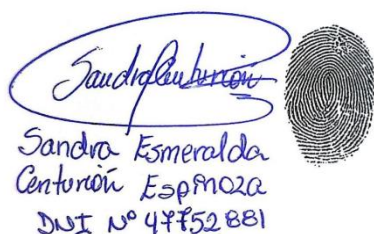 Sandra Centurión
Sandra Esmeralda
Centurión Espinoza
DNI Nº 47752881